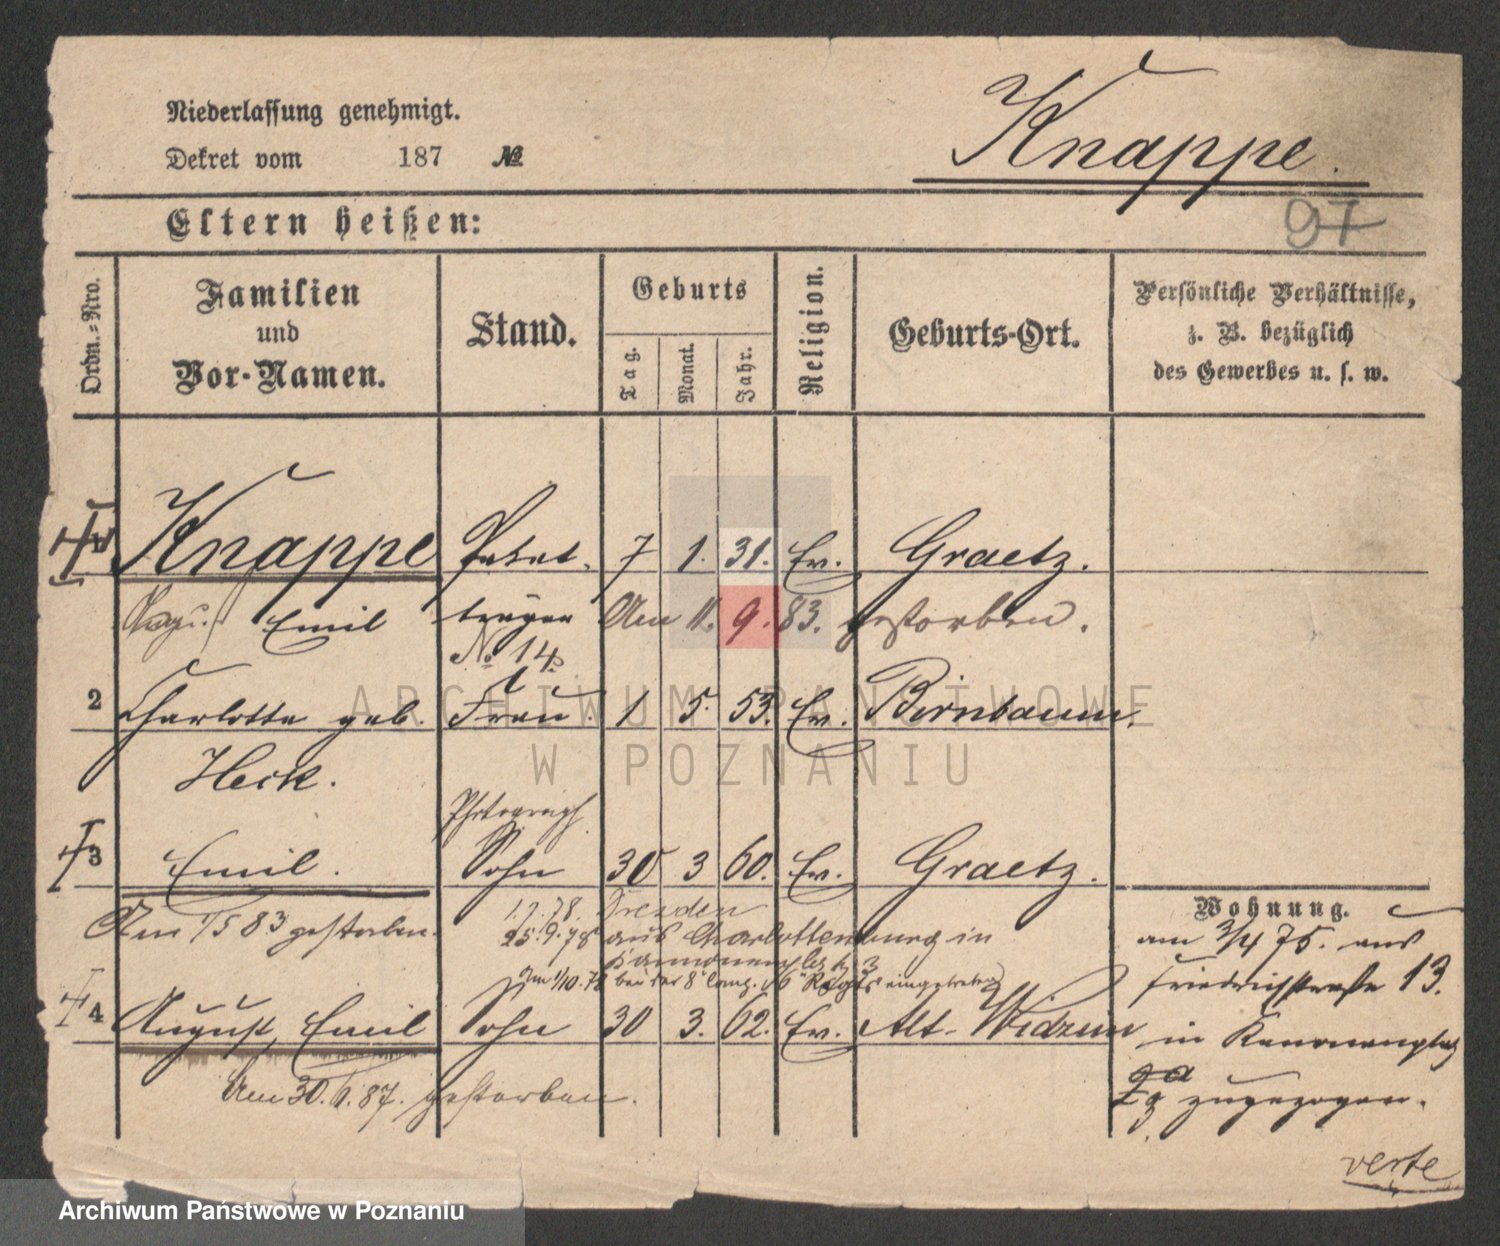 Niederlassung genehmigt.
Dekret vom 187 №
Knappe.
97
Eltern heißen:
Ordn.=Nro.
Familien
und
Vor-Namen.
Stand.
Geburts
Tag.
Monat.
Jahr.
Religion.
Geburts-Ort.
Persönliche Verhältnisse,
z. B. bezüglich
des Gewerbes u. s. w.
1 Knappe Paket- 7 1. 31. Ev. Graetz.
Emil träger Am 11. 9. 83. gestorben.
№ 14
2 Charlotte geb. Frau. 1 5. 53. Ev. Birnbaum.
Heck.
Photograph
3 Emil. Sohn 30 3 60. Ev. Graetz.
Wohnung.
1.7.78. Dresden
Am 1/5 83 gestorben.
25.9.78 aus Charlottenburg in
Kanonenplatz 3
Am 1/10.78 bei der 8 Comp. 46 Regts eingetreten
4 August, Emil Sohn 30 3. 62. Ev. Alt-Widzim
Am 30.6.87. gestorben.
am 3/4 75. aus
Friedrichstraße 13.
in Kanonenplatz
zugezogen.
verte
ARCHIWUM PAŃSTWOWE
W POZNANIU
Archiwum Państwowe w Poznaniu